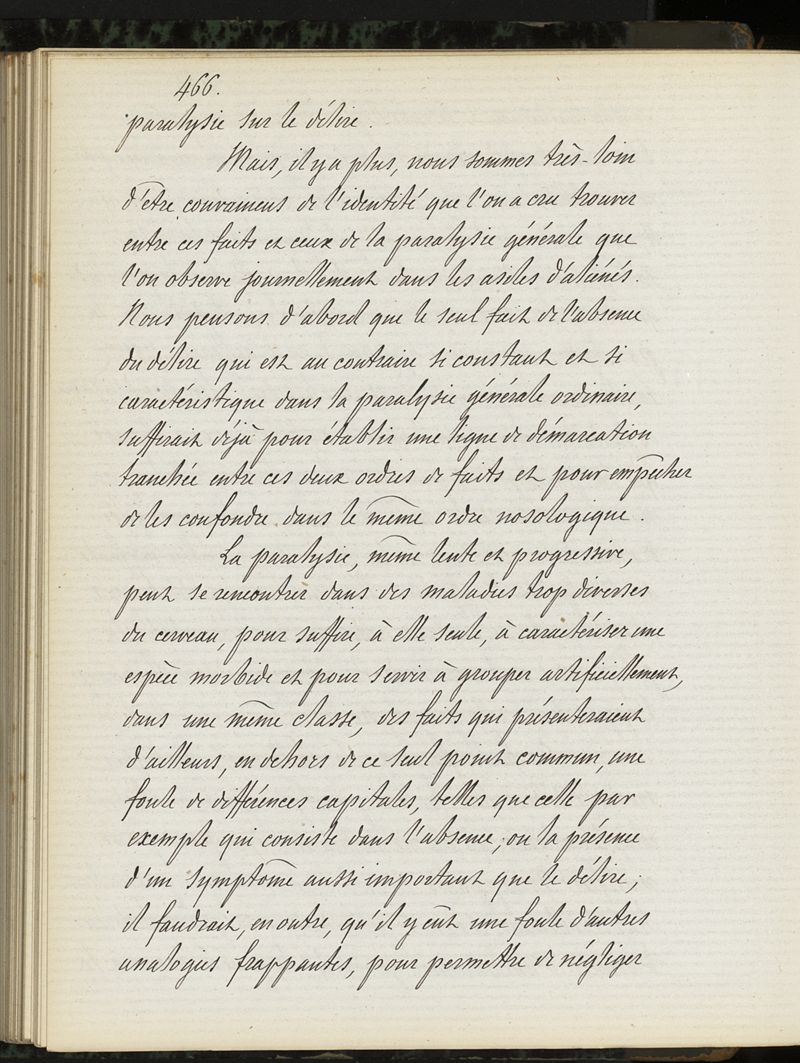 466.
paralysie sur le délire.
Mais, il y a plus, nous sommes très-loin
d'être convaincus de l'identité que l'on a cru trouver
entre ces faits et ceux de la paralysie générale que
l'on observe journellement dans les asiles d'aliénés.
Nous pensons d'abord que le seul fait de l'absence
du délire qui est au contraire si constant et si
caractéristique dans la paralysie générale ordinaire,
suffirait déjà pour établir une ligne de démarcation
tranchée entre ces deux ordres de faits et pour empêcher
de les confondre dans le même ordre nosologique.
La paralysie, même lente et progressive,
peut se rencontrer dans des maladies trop diverses
du cerveau, pour suffire, à elle seule, à caractériser une
espèce morbide et pour servir à grouper artificiellement,
dans une même classe, des faits qui présenteraient
d'ailleurs, en dehors de ce seul point commun, une
foule de différences capitales, telles que celle par
exemple qui consiste dans l'absence, ou la présence
d'un symptôme aussi important que le délire;
il faudrait, en outre, qu'il y eût une foule d'autres
analogies frappantes, pour permettre de négliger